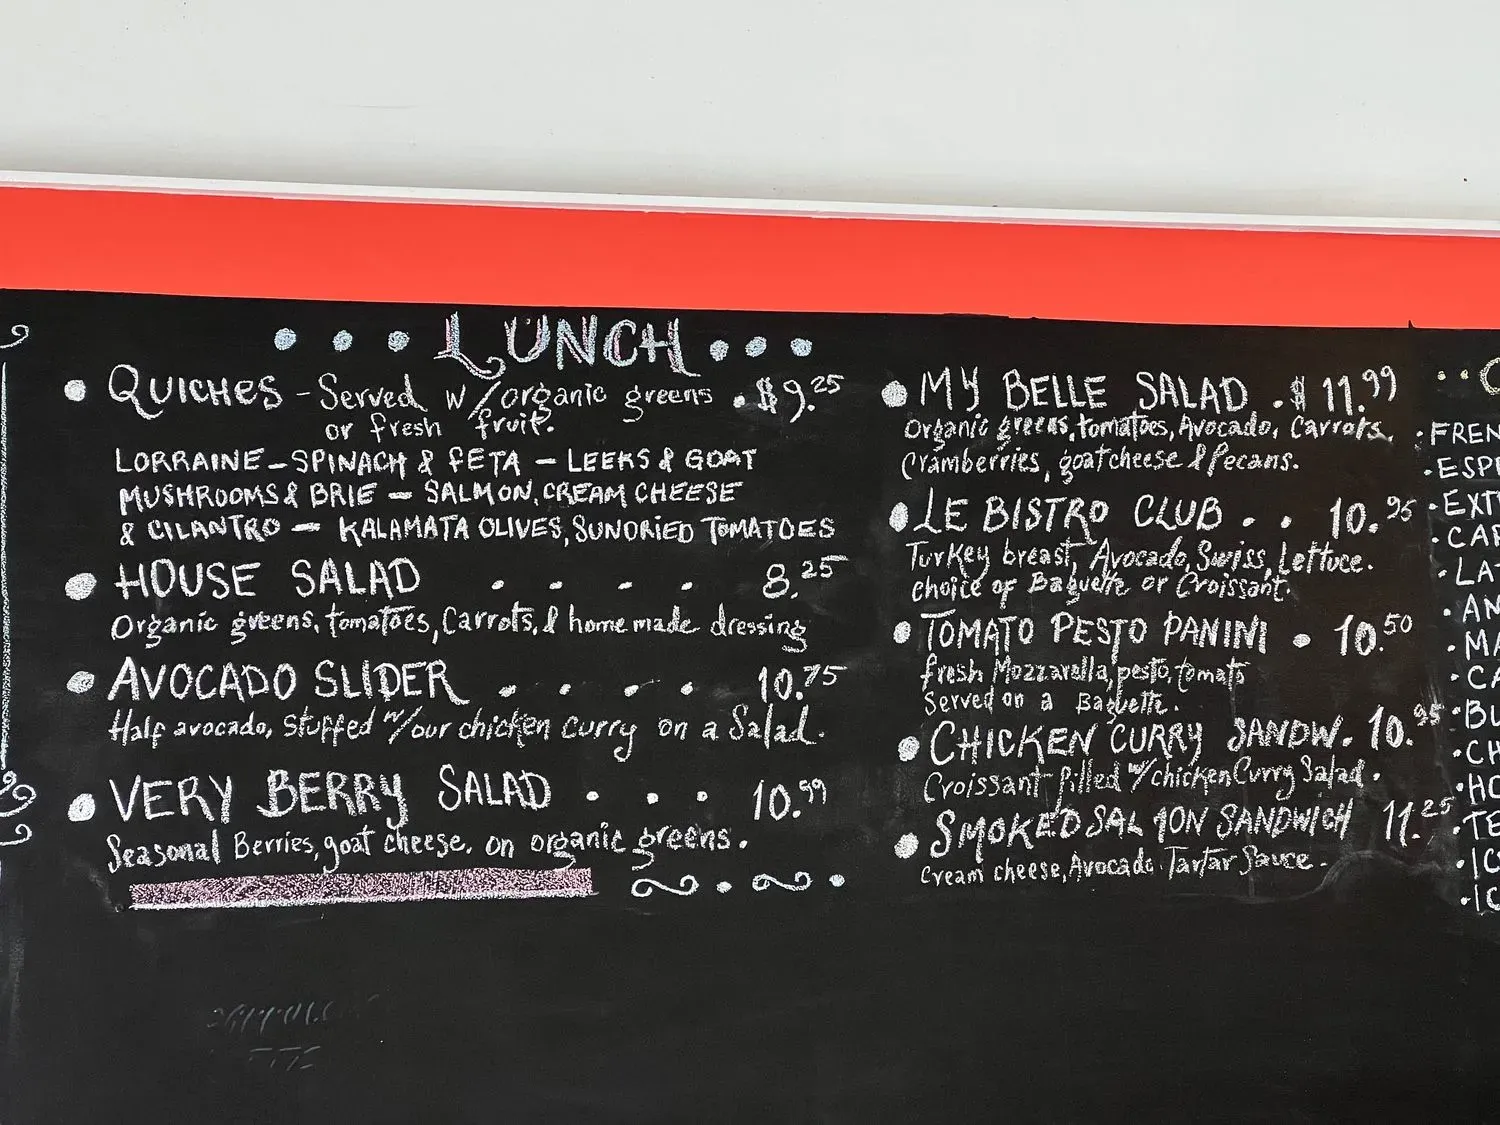 LUNCH
QUICHES - Served w/organic greens . $9.25
or fresh fruit.
LORRAINE - SPINACH & FETA - LEEKS & GOAT
MUSHROOMS & BRIE - SALMON, CREAM CHEESE
& CILANTRO - KALAMATA OLIVES, SUNDRIED TOMATOES
HOUSE SALAD . . . . 8.25
Organic greens, tomatoes, Carrots, & homemade dressing
AVOCADO SLIDER . . . . 10.75
Half avocado, stuffed w/our chicken curry on a Salad.
VERY BERRY SALAD . . . 10.99
Seasonal Berries, goat cheese, on organic greens.
MY BELLE SALAD . $11.99
Organic greens, tomatoes, Avocado, Carrots,
Cramberries, goat cheese & Pecans.
LE BISTRO CLUB . . 10.95
Turkey breast, Avocado, Swiss, Lettuce.
choice of Baguette or Croissant.
TOMATO PESTO PANINI . 10.50
fresh Mozzarella, pesto, tomato
Served on a Baguette.
CHICKEN CURRY SANDW. 10.95
Croissant filled w/chicken Curry Salad.
SMOKED SALMON SANDWICH 11.25
Cream cheese, Avocado. Tartar Sauce.